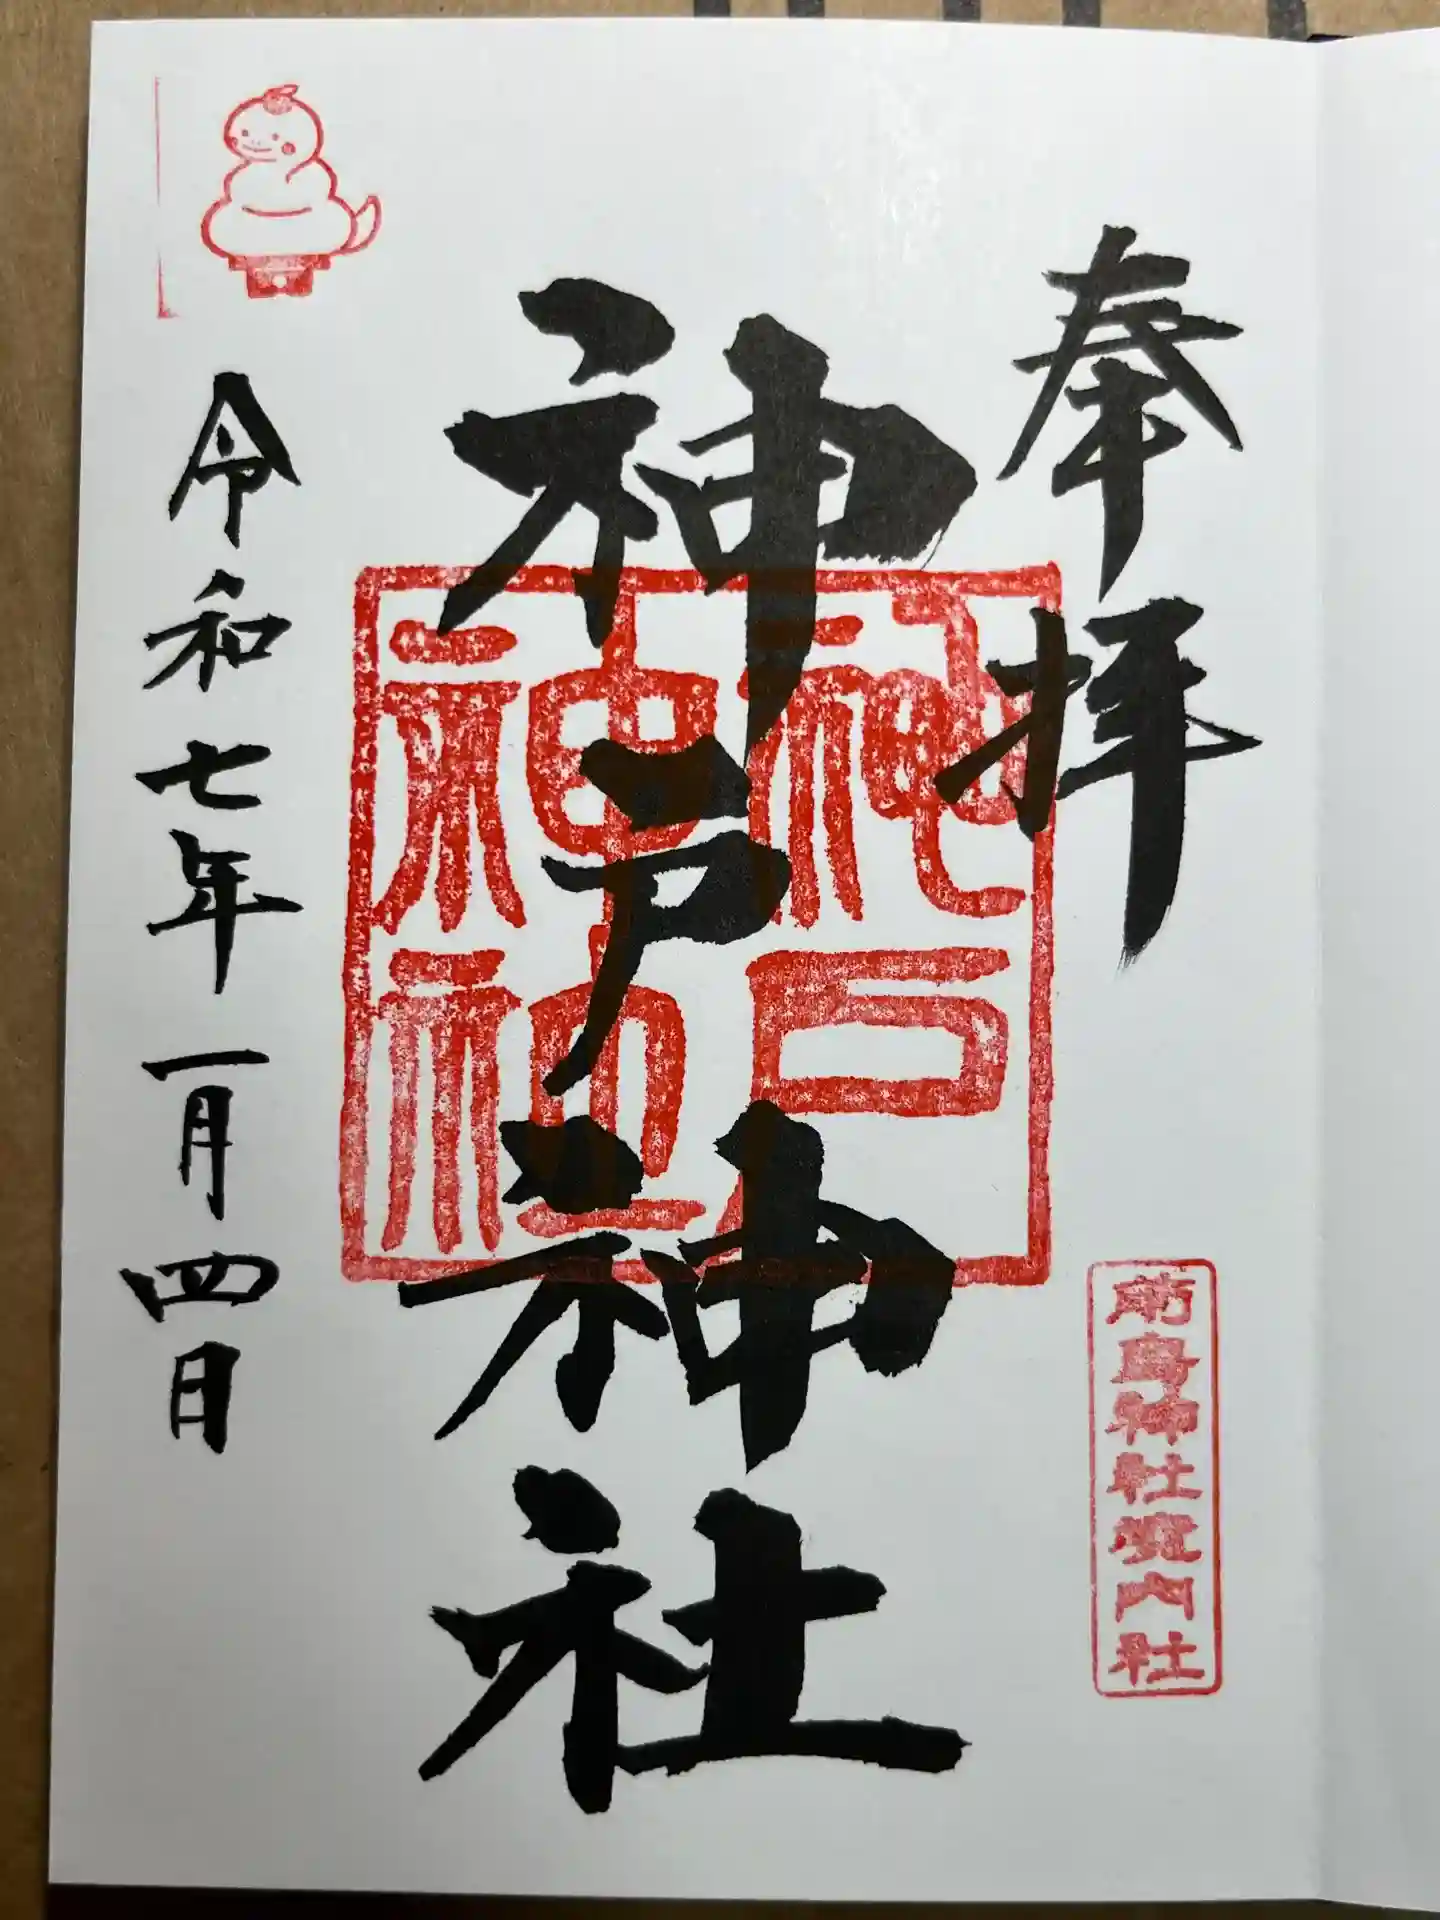 奉拝
前鳥神社境内社
神戸神社
神戸
神社
令和七年一月四日